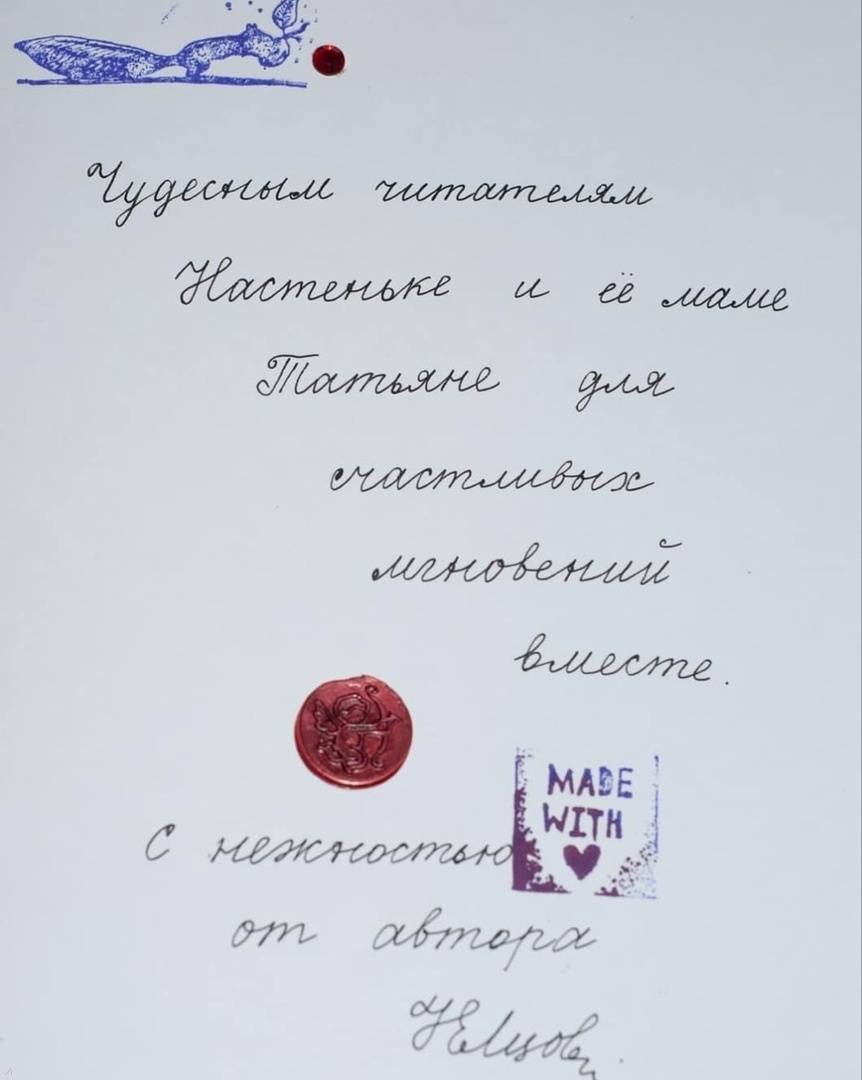 Чудесным читателям
Настеньке и её маме
Татьяне для
счастливых
мгновений
вместе.
MADE
WITH
С нежностью
от автора